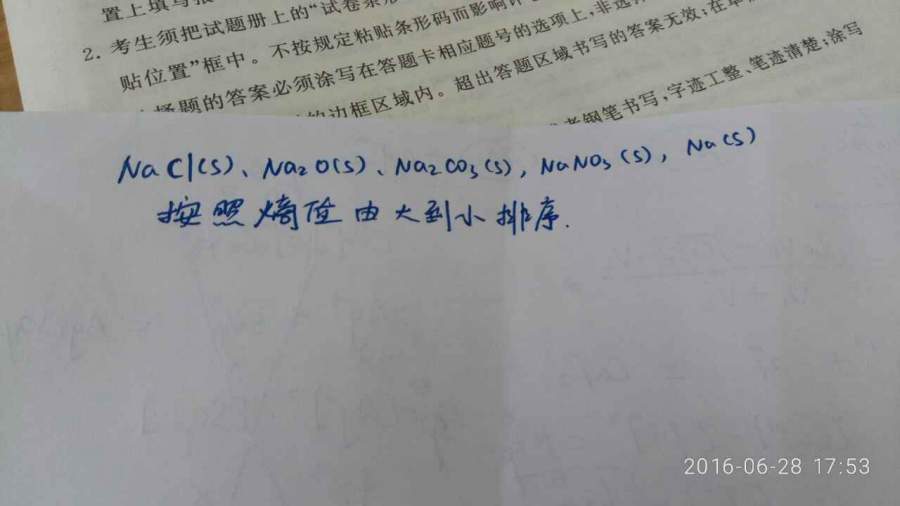 置上填写
2. 考生须把试题册上的“试卷条形
贴位置”框中。不按规定粘贴条形码而影响评
择题的答案必须涂写在答题卡相应题号的选项上,非选
的边框区域内。超出答题区域书写的答案无效;在草
钢笔书写,字迹工整、笔迹清楚;涂写
NaCl(s)、Na2O(s)、Na2CO3(s), NaNO3(s), Na(s)
按照熵值由大到小排序.
2016-06-28 17:53